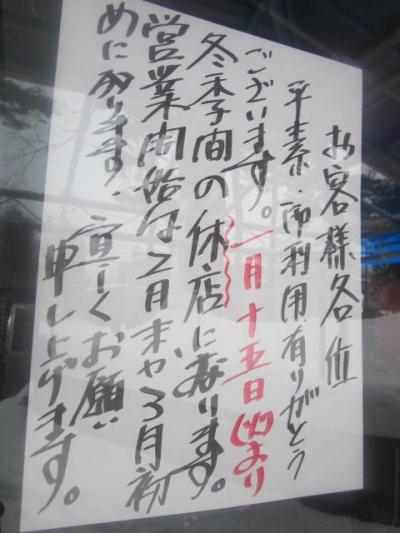 お客様各位
平素、御利用有りがとう
ございます。一月十五日(火)より
冬季間の休店になります。
営業開始は2月末や3月初
めになります、宜しくお願い
申し上げます。